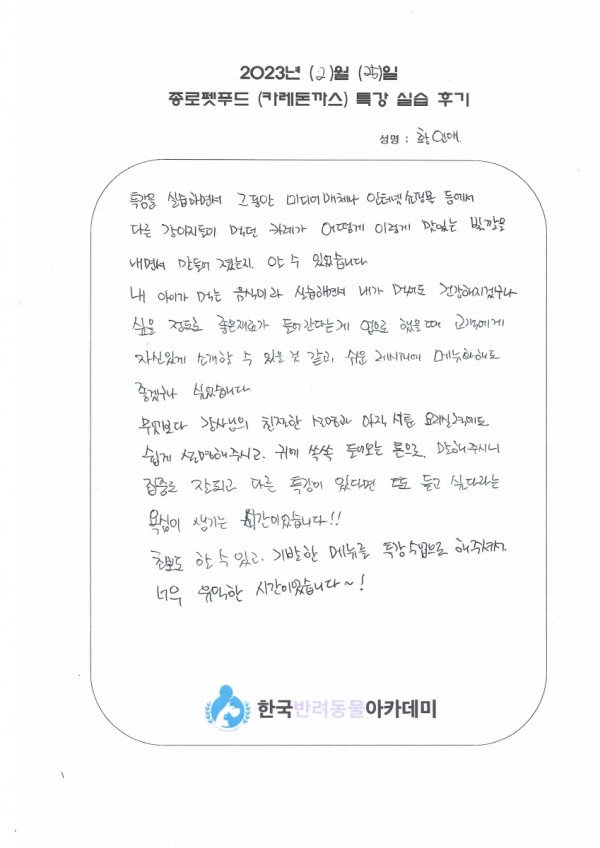 2023년 (2)월 (25)일
종로펫푸드 (카레돈까스) 특강 실습 후기
성명 : 황인애
특강을 실습하면서 그동안 미디어매체나 인터넷 쇼핑몰 등에서
다른 강아지들이 먹던 카레가 어떻게 이렇게 맛있는 빛깔을
내면서 만들어 졌는지 알 수 있었습니다
내 아이가 먹는 음식이라 실습해면서 내가 먹어도 건강해지겠구나
싶을 정도로 좋은재료가 들어간다는게 업으로 했을때 고객에게
자신있게 소개할 수 있을 것 같고, 쉬운 레시피에 메뉴화해도
좋겠구나 싶었습니다
무엇보다 강사님의 친절한 설명과 아직 서툰 요리실력에도
쉽게 설명해주시고, 귀에 쏙쏙 들어오는 톤으로 말해주시니
집중도 잘되고 다른 특강이 있다면 또 듣고 싶다라는
욕심이 생기는 시간이었습니다!!
초보도 할 수 있고, 기발한 메뉴를 특강수업으로 해주셔서
너무 유익한 시간이었습니다~!
한국반려동물아카데미